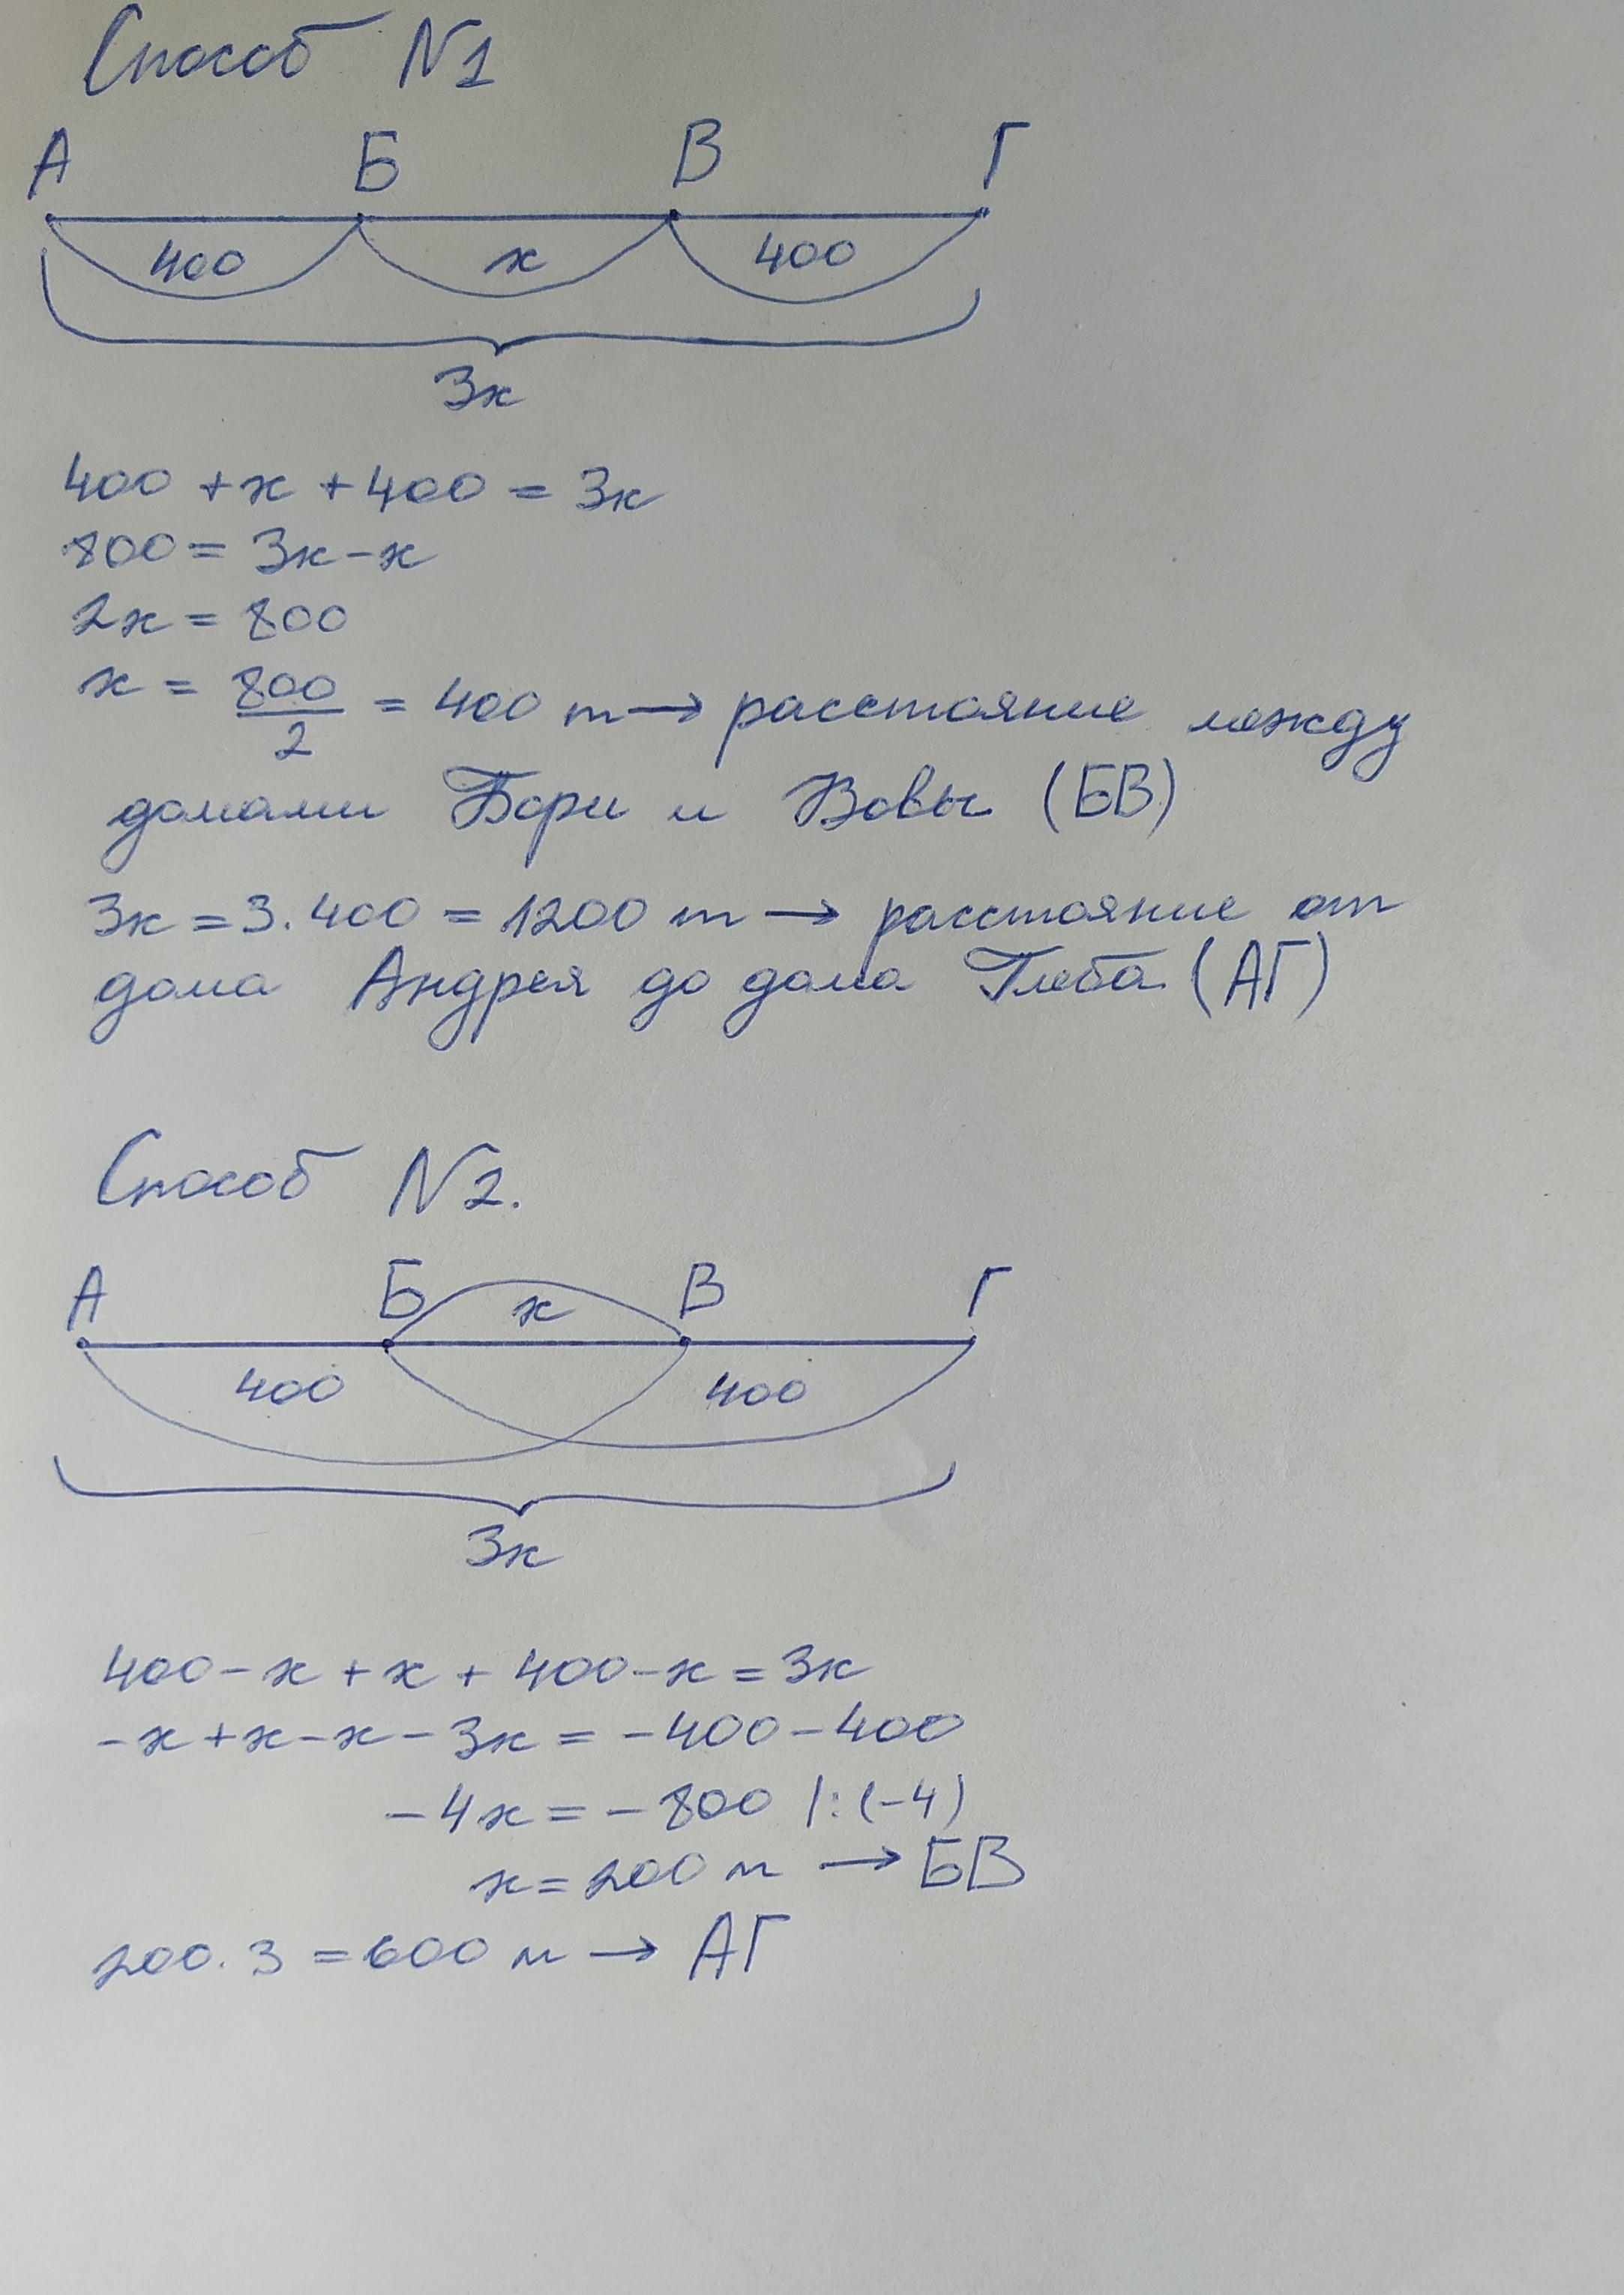 Способ N1
А Б В Г
400 x 400
3x
400 + x + 400 = 3x
800 = 3x - x
2x = 800
x = 800/2 = 400 m → расстояние между
домами Бори и Вовы (БВ)
3x = 3 · 400 = 1200 m → расстояние от
дома Андрея до дома Глеба (АГ)
Способ N2.
А Б x В Г
400 400
3x
400 - x + x + 400 - x = 3x
- x + x - x - 3x = - 400 - 400
- 4x = - 800 |: (-4)
x = 200 м → БВ
200 · 3 = 600 м → АГ